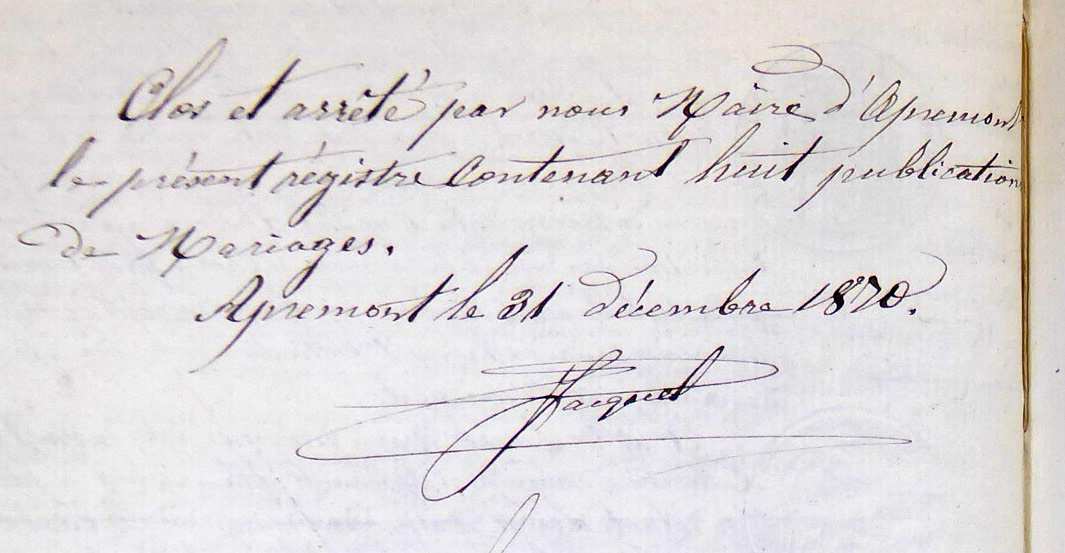 Clos et arrêté par nous Maire d'Apremont
le présent régistre contenant huit publications
de Mariages.
Apremont le 31 décembre 1870.
Jacquet